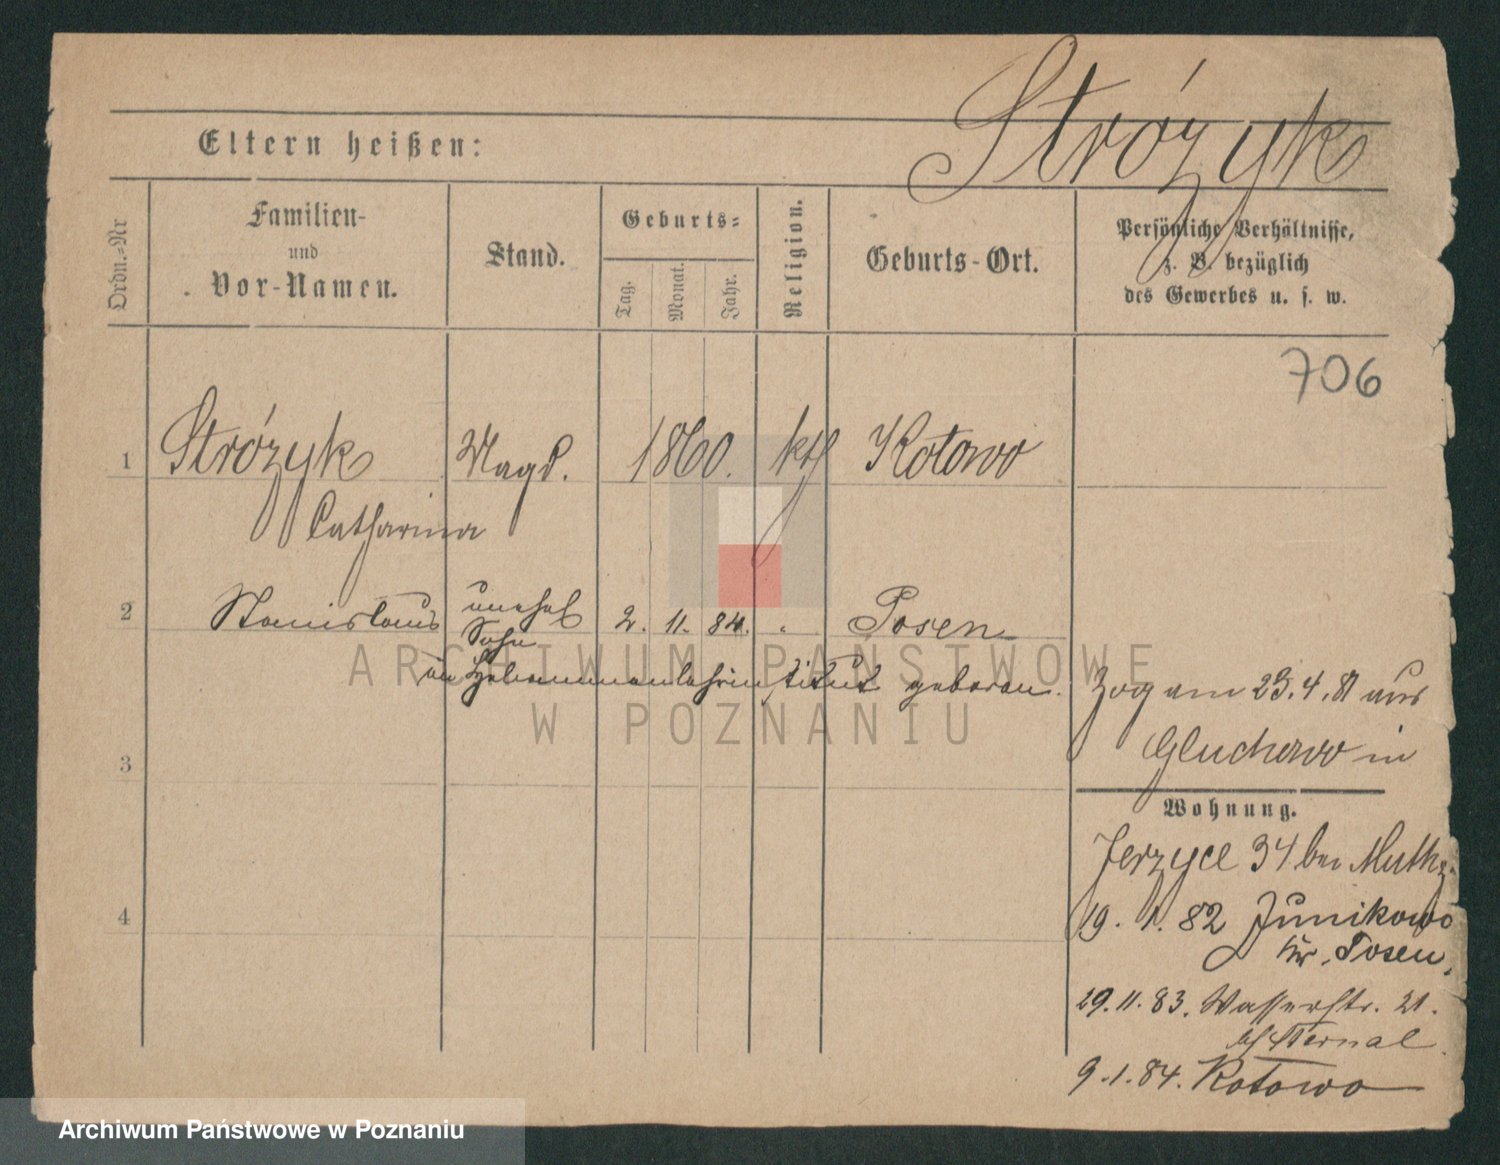 Strózyk
Eltern heißen:
Ordn.=Nr
Familien-
und
Vor-Namen.
Stand.
Geburts=
Tag.
Monat.
Jahr.
Religion.
Geburts-Ort.
Persönliche Verhältnisse,
z. B. bezüglich
des Gewerbes u. s. w.
706
1 Strózyk Magd. 1860. kth Kotowo
Catharina
2 Stanislaus unehel 2. 11. 84. " Posen
Sohn
im Hebammenlehrinstitut geboren.
ARCHIWUM PAŃSTWOWE
W POZNANIU
Zog am 23. 4. 81 aus
Gluchowo in
3
Wohnung.
Jerzyce 34 bei
4
19. 1. 82 Junikowo
Kr. Posen,
29. 11. 83. Wasserstr. 21.
bei
9. 1. 84. Kotowo
Archiwum Państwowe w Poznaniu